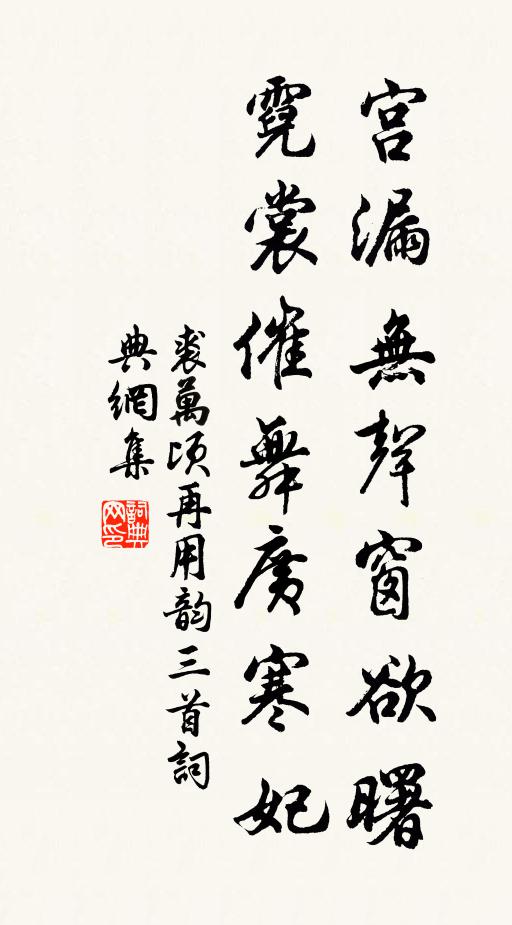 宮漏無聲窗欲曙
霓裳催舞廣寒妃
裘萬頃再用韵三首詞
典網集
詞典
网印